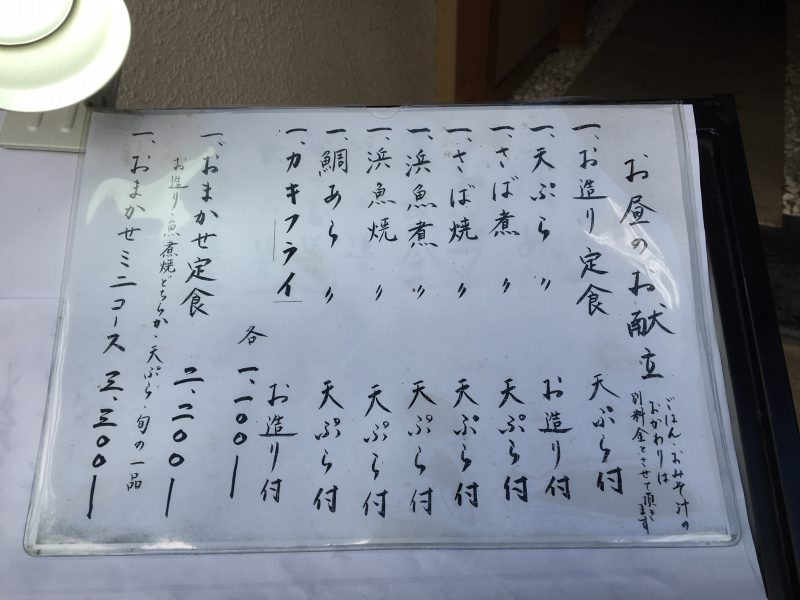 お昼のお献立
ごはん・おみそ汁の
おかわりは
別料金とさせて頂きます
一、お造り定食 天ぷら付
一、天ぷら 〃 お造り付
一、さば煮 〃 天ぷら付
一、さば焼 〃 天ぷら付
一、浜魚煮 〃 天ぷら付
一、浜魚焼 〃 天ぷら付
一、鯛あら 〃 天ぷら付
一、カキフライ お造り付
各 一、一〇〇ー
一、おまかせ定食 二、二〇〇ー
お造り・魚煮焼どちらか・天ぷら・旬の一品
一、おまかせミニコース 三、三〇〇ー